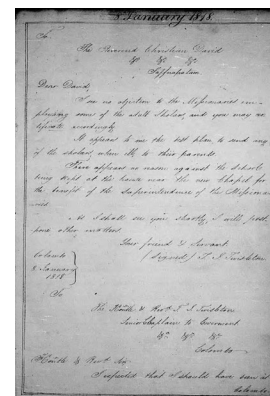 8 January 1818.
To
The Reverend Christian David
&c &c &c
Jaffnapatam
Dear David,
I see no objection to the Missionaries em-
ploying some of the adult Scholars, and you may no-
tify it accordingly.
It appears to me the best plan to send any
of the scholars, when ill, to their parents.
There appears no reason against the School
being kept at the house near the new Chapel for
the benefit of the Superintendance of the Missiona-
ries.
As I shall see you shortly, I will, post-
pone other matters.
Your friend & Servant
(signed) T. J. Twisleton
Colombo
8 January
1818
To
The Honble & Revd. T. J. Twisleton
Senior Chaplain to Government
&c &c &c
Colombo
Honble & Revd Sir
I expected that I should have been in
Colombo